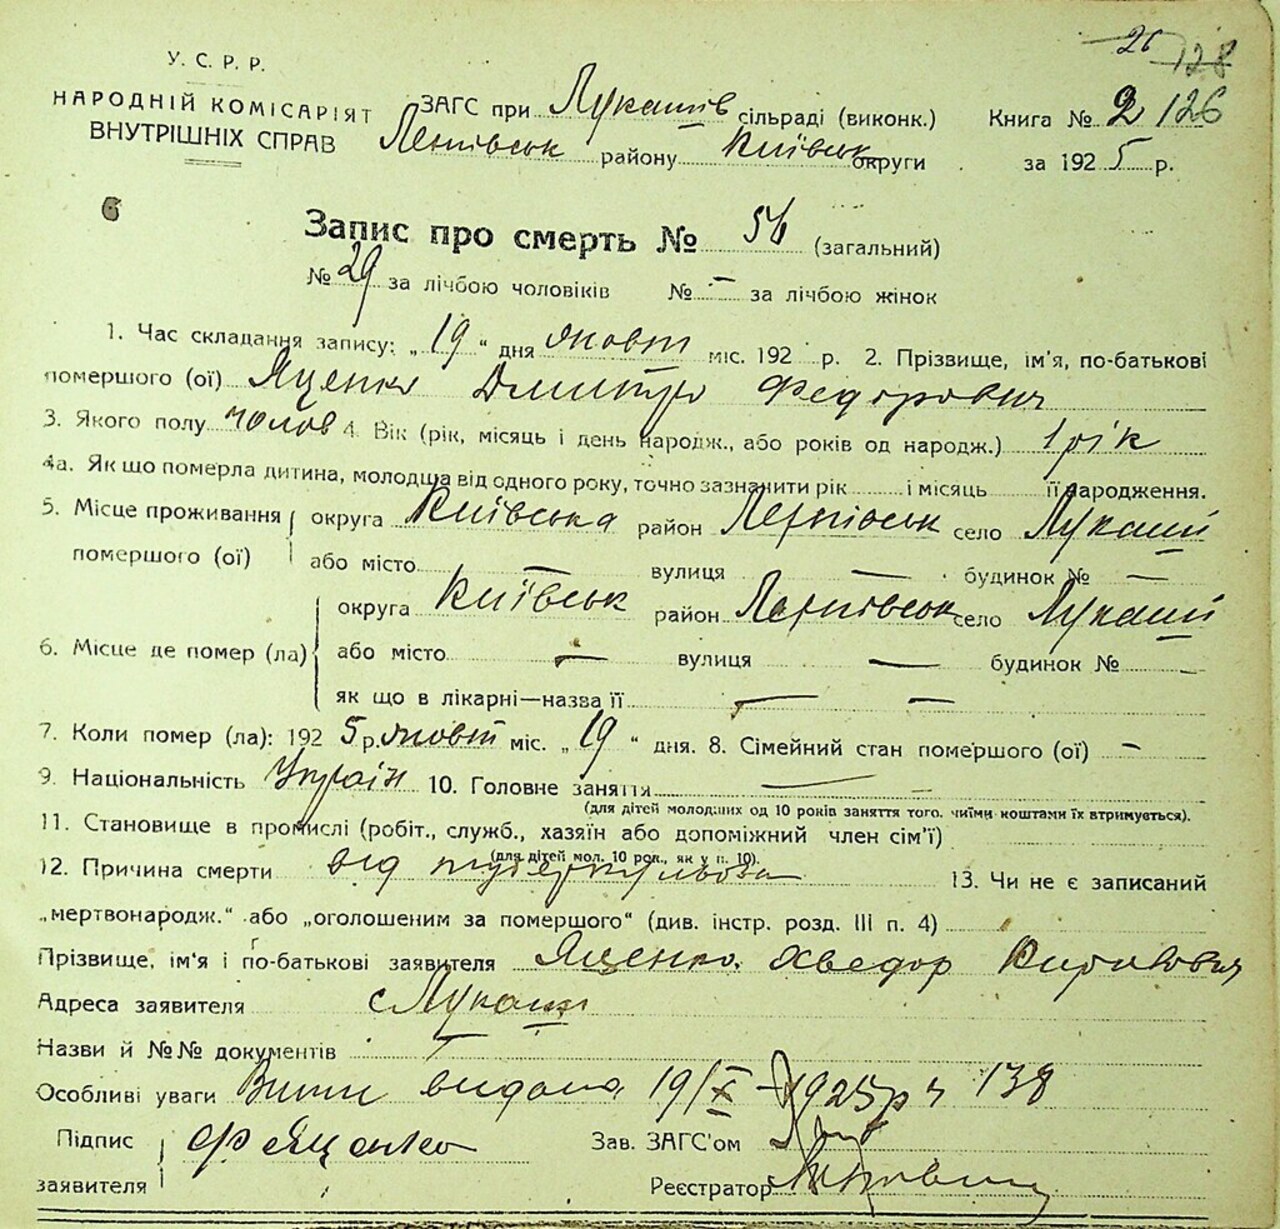 26 128
У. С. Р. Р.
НАРОДНІЙ КОМІСАРІЯТ
ВНУТРІШНІХ СПРАВ
ЗАГС при Лукашів сільраді (виконк.)
районy Київськ округи
Книга № 2 126
за 1925 р.
6
Запис про смерть № 56 (загальний)
№ 29 за лічбою чоловіків № — за лічбою жінок
1. Час складання запису: „19“ дня жовт міс. 192 р. 2. Прізвище, ім'я, по-батькові
помершого (ої) Яценко Дмитро Федорович
3. Якого полу чолов 4. Вік (рік, місяць і день народж., або років од народж.) 1 рік
4а. Як що померла дитина, молодша від одного року, точно зазначити рік і місяць її народження.
5. Місце проживання округа Київська район село Лукаші
помершого (ої) або місто — вулиця — будинок № —
округа Київськ район село Лукаші
6. Місце де помер (ла) або місто — вулиця — будинок № —
як що в лікарні—назва її — —
7. Коли помер (ла): 1925 р. жовт міс. „19“ дня. 8. Сімейний стан помершого (ої) —
9. Національність Україн 10. Головне заняття —
(для дітей молодших од 10 років заняття того, чиїми коштами їх втримується).
11. Становище в промислі (робіт., служб., хазяїн або допоміжний член сім'ї)
(для дітей мол. 10 рок., як у п. 10).
12. Причина смерти від туберкульоза 13. Чи не є записаний
„мертвонародж.“ або „оголошеним за помершого“ (див. інстр. розд. III п. 4)
Прізвище, ім'я і по-батькові заявителя Яценко Хведор Кирилович
Адреса заявителя с Лукаші
Назви й №№ документів —
Особливі уваги видана 19/X 1925 р ч 138
Підпис Ф Яценко Зав. ЗАГС'ом
заявителя Реєстратор